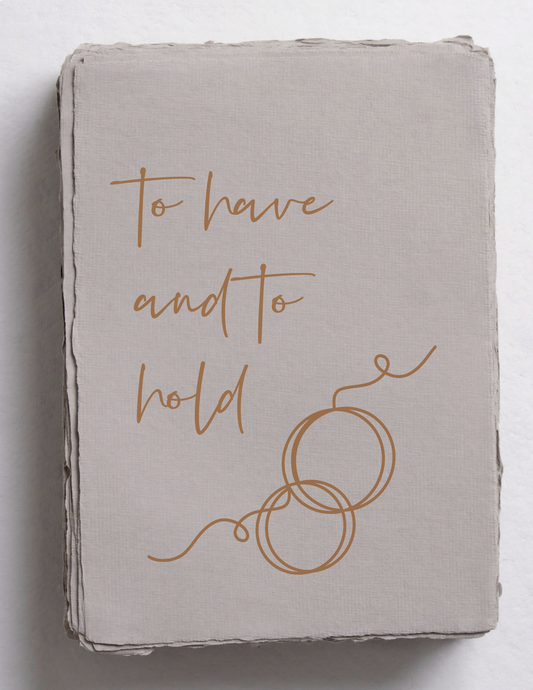 to have
and to
hold